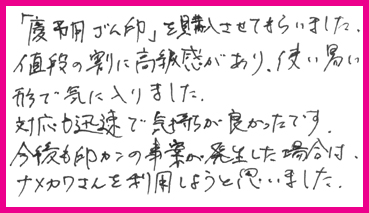 「慶弔用ゴム印」を購入させてもらいました。
値段の割に高級感があり、使い易い
形で気に入りました。
対応も迅速で気持が良かったです。
今後も印カンの事案が発生した場合は、
ナメカワさんを利用しようと思いました。